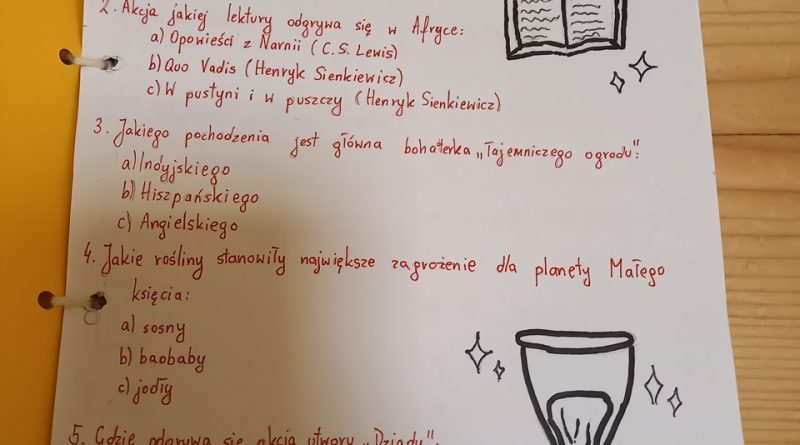 2. Akcja jakiej lektury odgrywa się w Afryce:
a) Opowieści z Narnii (C.S. Lewis)
b) Quo Vadis (Henryk Sienkiewicz)
c) W pustyni i w puszczy (Henryk Sienkiewicz)
3. Jakiego pochodzenia jest główna bohaterka „Tajemniczego ogrodu":
a) Indyjskiego
b) Hiszpańskiego
c) Angielskiego
4. Jakie rośliny stanowiły największe zagrożenie dla planety Małego
księcia:
a) sosny
b) baobaby
c) jodły
5. Gdzie odgrywa się akcja utworu „Dziady":